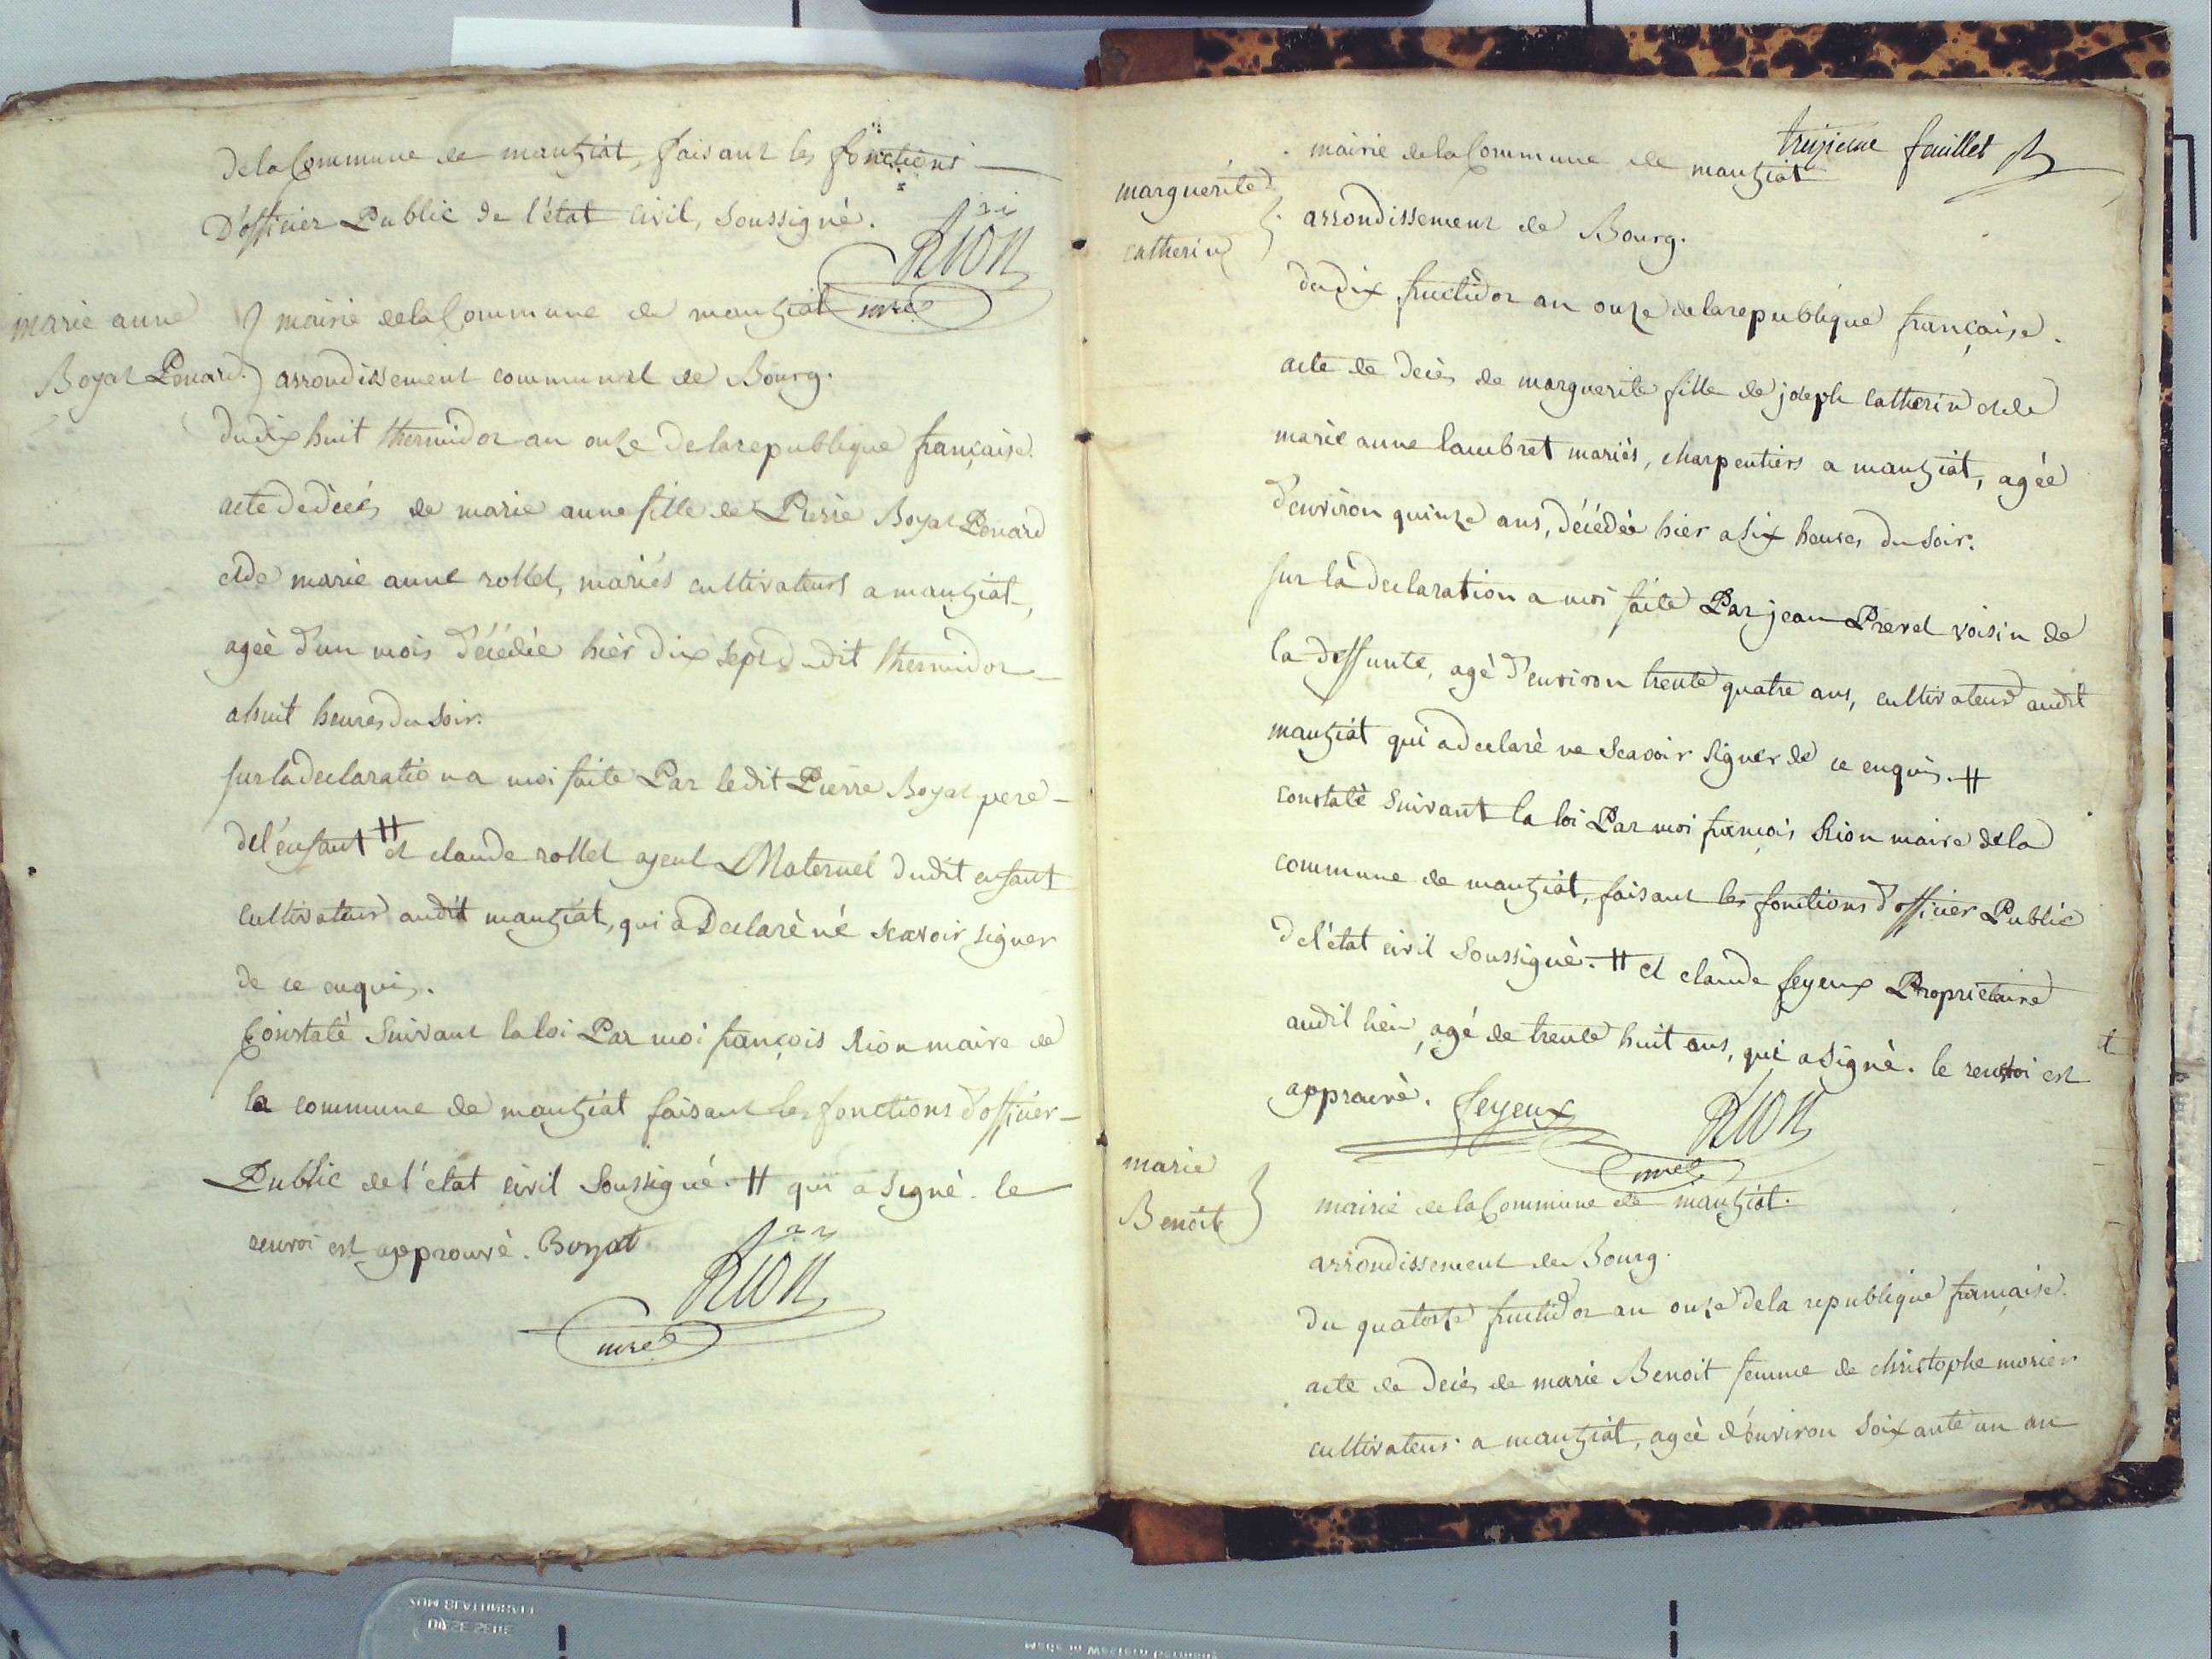 de la Commune de mantziat, faisant les fonctions
D'officier Public de l'état Civil, soussigné.
Rion
mre
marie anne
Boyat Penard.
mairie de la Commune de mantziat
arrondissement communal de Bourg.
du dix huit thermidor an onze de la republique française.
acte de décés de marie anne fille de Pierre Boyat Penard
et de marie anne rollet, mariés cultivateurs a mantziat,
ageè d'un mois décédée hier dix sept dudit thermidor
a huit heures du soir.
sur la declaration a moi faite Par le dit Pierre Boyat pere
de l'enfant # et claude rollet ayeul Maternel dudit enfant
cultivateur audit mantziat, qui a Declaré né scavoir signer
de ce enquis.
Constaté Suivant la loi Par moi françois Rion maire de
la commune de mantziat faisant les fonctions d'officier
Public de l'état civil Soussigné. # qui a signé. le
renvoi est approuvé. Boyat
Rion
mre
treizieme feuillet
marguerite
catherin
mairie de la Commune de mantziat
arrondissement de Bourg.
du dix fructidor an onze de la republique française.
acte de décès de marguerite fille de joseph catherin et de
marie anne lambret mariés, charpentiers a mantziat, agée
d'environ quinze ans, décédée hier a six heures du soir.
sur la declaration a moi faite Par jean Prevel voisin de
la deffunte, agé d'environ trente quatre ans, cultivateur audit
mantziat qui a declaré ne scavoir signer de ce enquis. #
constaté suivant la loi Par moi françois Rion maire de la
commune de mantziat, faisant les fonctions d'officier Public
de l'état civil Soussigné. # et claude feyeux Propriétaire
audit lieu, agé de trente huit ans, qui a signé. le renvoi est
approuvé. feyeux
Rion
mre
marie
Benoit
mairie de la Commune de mantziat.
arrondissement de Bourg.
du quatorze fructidor an onze de la republique française.
acte de décès de marie Benoit femme de christophe morier
cultivateur a mantziat, ageè d'environ soixante un an